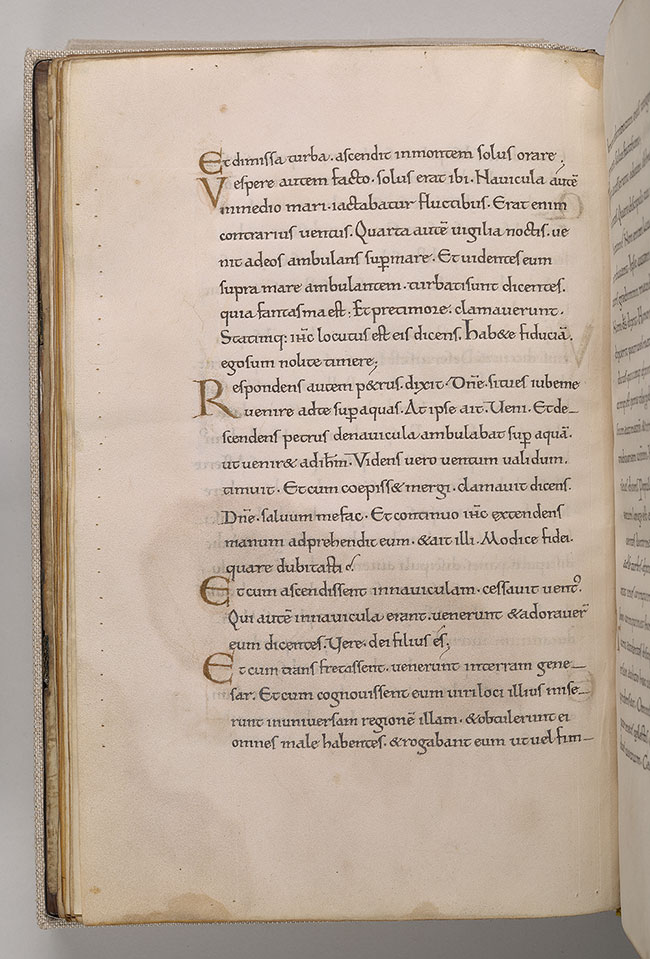 Et dimissa turba. ascendit inmontem solus orare;
Vespere autem facto. solus erat ibi. Navicula autē
inmedio mari. iactabatur fluctibus. Erat enim
contrarius ventus. Quarta autē vigilia noctis. ve
nit adeos ambulans sup̄mare. Et videntes eum
supra mare ambulantem. turbatisunt dicentes.
quia fantasma est; Et pretimore. clamaverunt.
Statimq; ihc̄ locutus est eis dicens. Hab&e fiduciā.
egosum nolite timere;
Respondens autem p&rus. dixit. Dn̄e. situes iubeme
venire adte sup̄aquas. At ipse ait. Veni. Et de_
scendens petrus denavicula ambulabat sup̄ aquā.
ut venir& adihm̄. Videns vero ventum validum.
timuit. Et cum coepiss& mergi. clamavit dicens.
Dn̄e. salvum mefac. Et continuo ihc̄ extendens
manum adprehendit eum. &ait illi. Modice fidei.
quare dubitasti;
Et cum ascendissent innaviculam. cessavit vent᾿.
Qui autē innavicula erant. venerunt &adoraver̄
eum dicentes. Vere. dei filius es;
Et cum trans fretassent. venerunt interram gene_
sar. Et cum cognovissent eum viri loci illius mise_
runt inuniversam regionē illam. &obtulerunt ei
omnes male habentes. &rogabant eum ut vel fim_